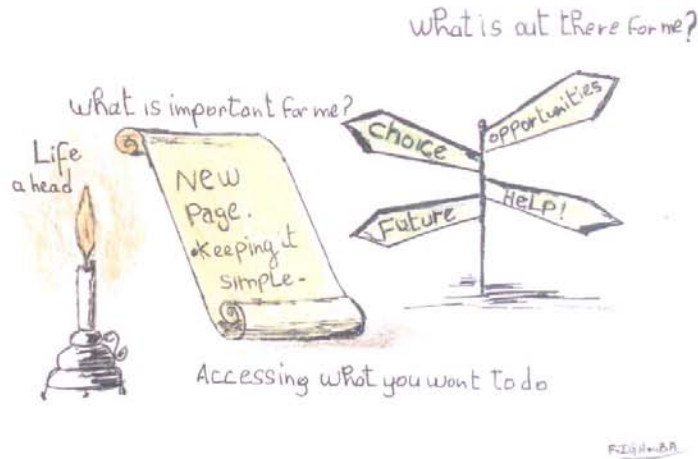 What is out there for me?
What is important for me?
Life
ahead
New
Page.
•Keeping it
simple-
Choice
opportunities
Future
HeLP!
Accessing what you want to do